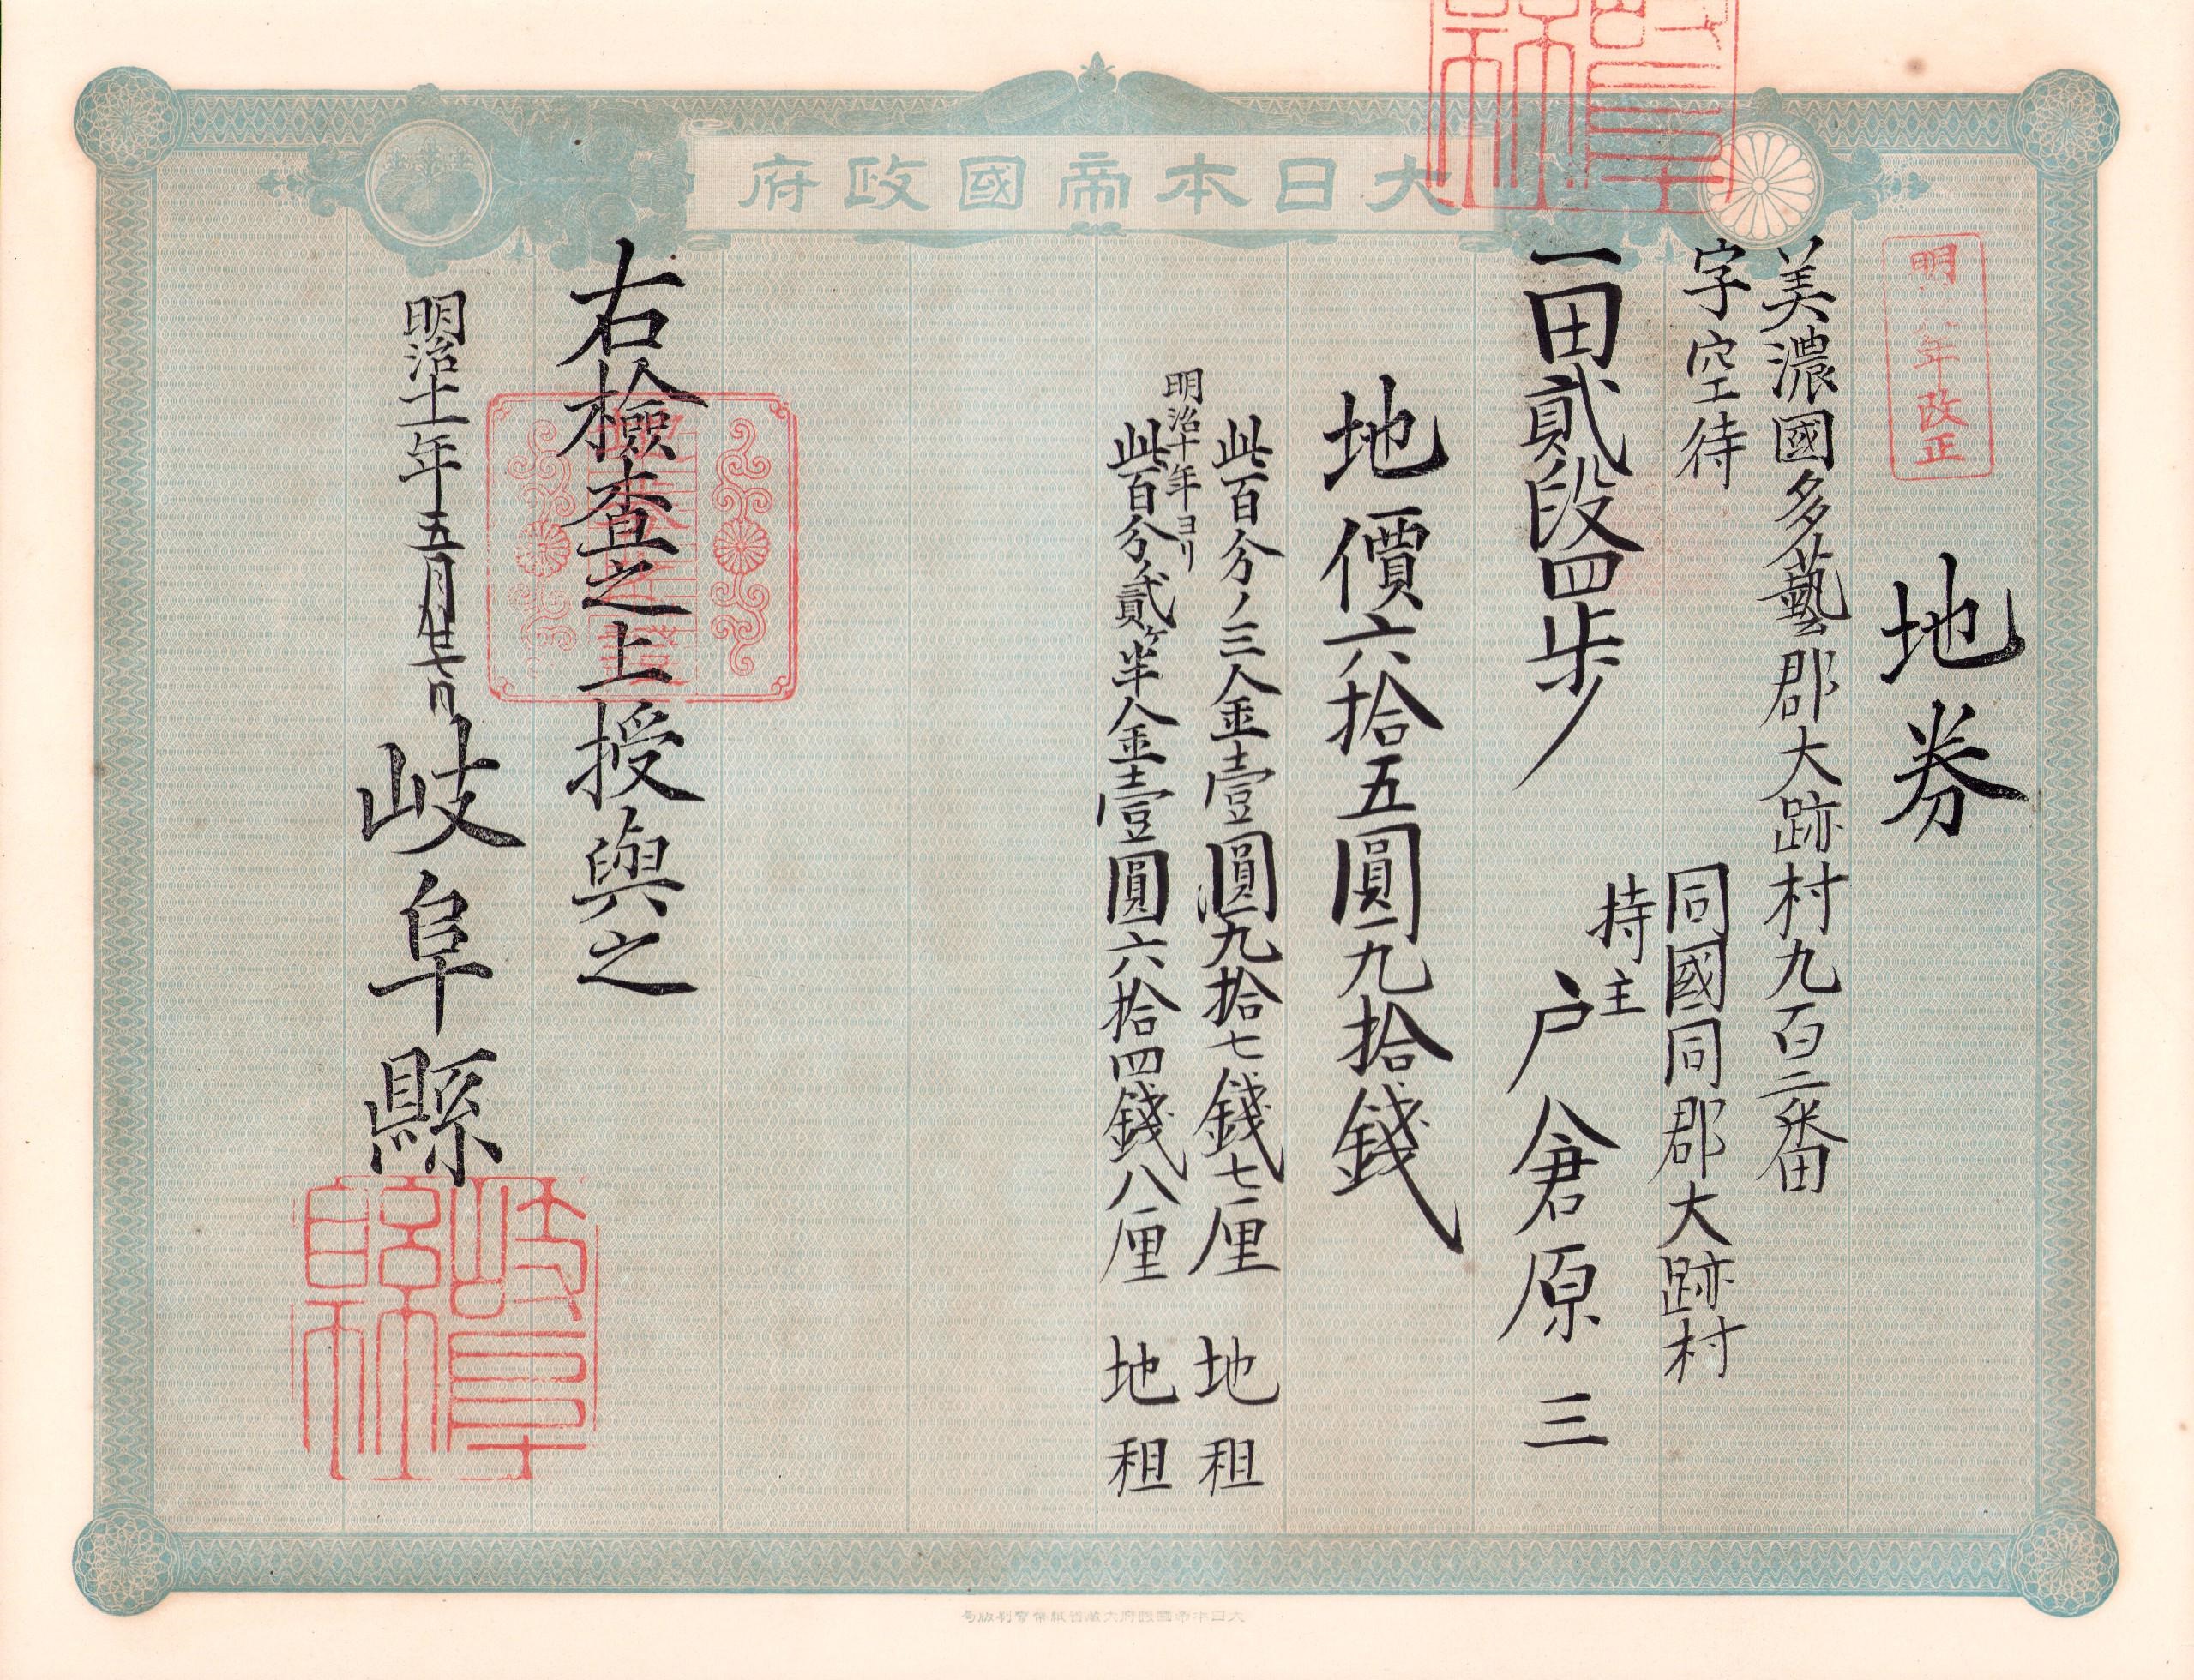 大日本帝國政府
明 年改正
地券
美濃國多藝郡大跡村九百二番
字空待
同國同郡大跡村
持主
戸倉原三
一田貳段四歩
地價六拾五圓九拾錢
此百分ノ三金壹圓九拾七錢七厘 地租
明治十年ヨリ
此百分ノ貳ヶ半金壹圓六拾四錢八厘 地租
右檢査之上授與之
明治十一年五月廿七日
岐阜縣